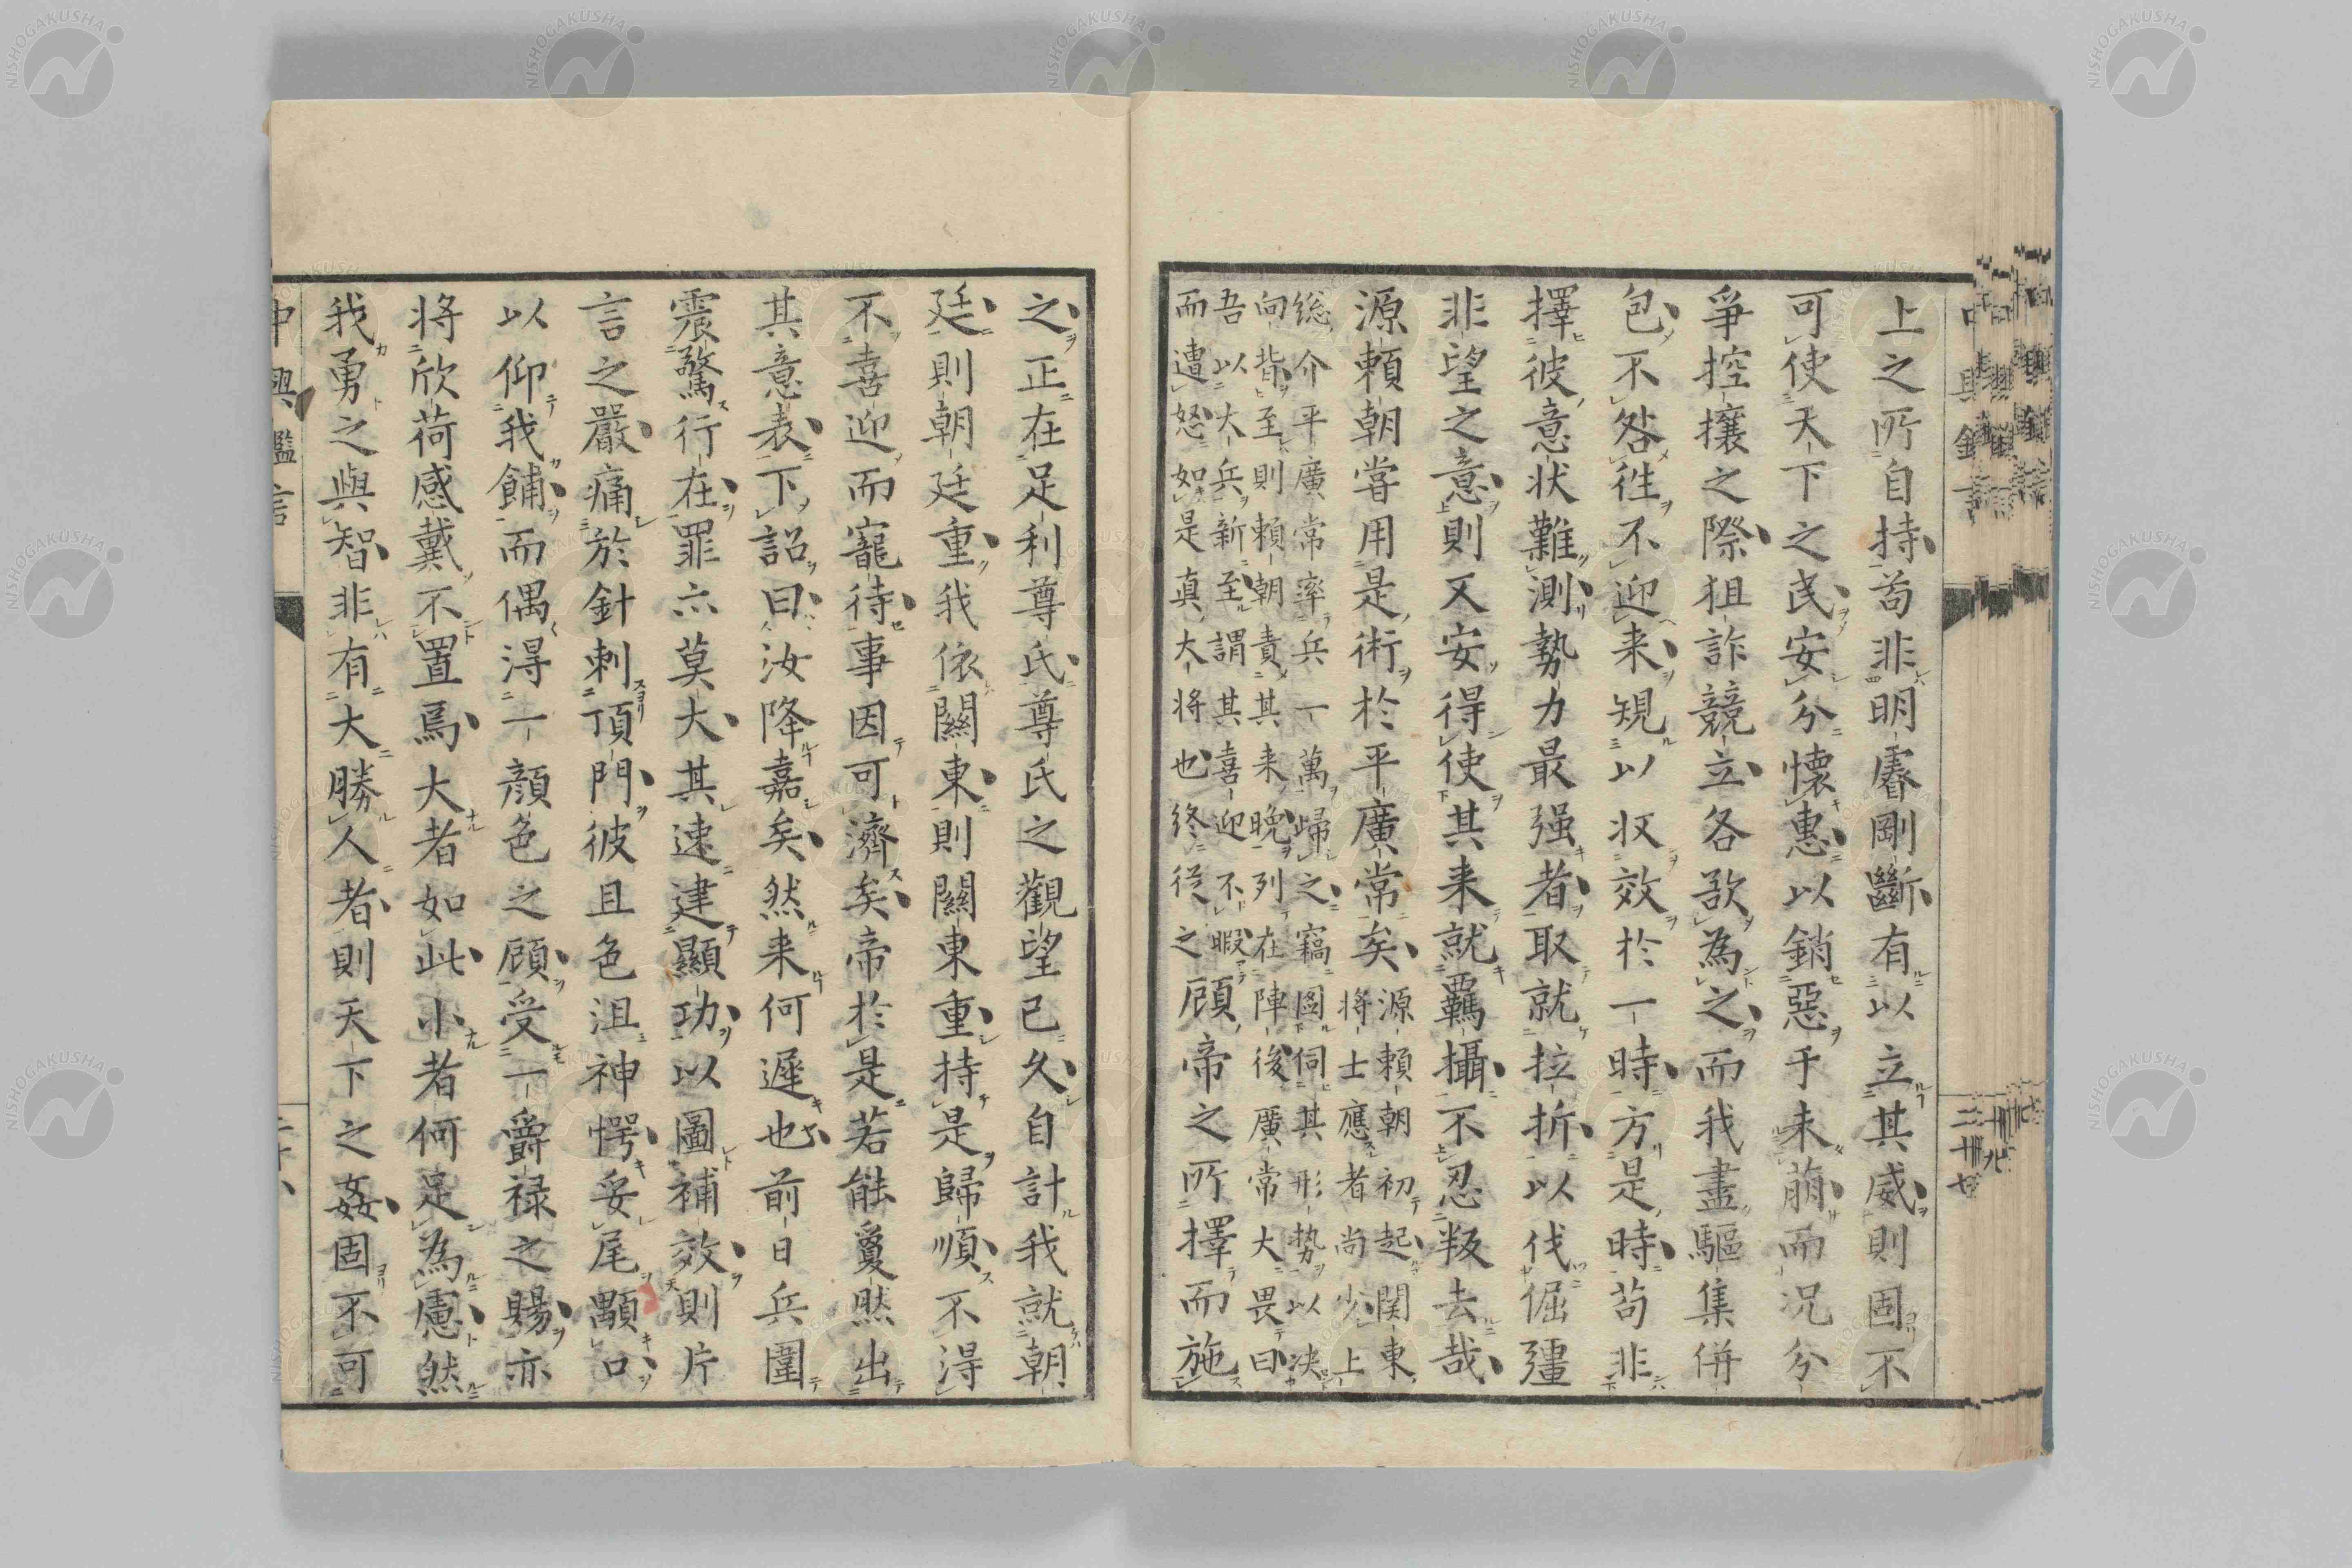 上之所自持苟非明睿剛斷有以立其威則固不
可使天下之民安分懷惠以銷惡于未萠而況分
爭控攘之際狙詐競立各欲為之而我盡驅集併
包不咎徃不迎来規以収效於一時方是時苟非
擇彼意状難測勢力最强者取就拉折以伐倔彊
非望之意則又安得使其来就羈攝不忍叛去哉
源頼朝嘗用是術於平廣常矣源頼朝初起関東
将士應者尚少上
総介平廣常率兵一萬歸之竊圖伺其形勢以决
向背至則頼朝責其来晩列在陣後廣常大畏曰
吾以大兵新至謂其喜迎不暇
而遭怒如是真大将也終從之顧帝之所擇而施
之正在足利尊氏尊氏之觀望已久自計我就朝
廷則朝廷重我依關東則關東重持是歸順不得
不喜迎而寵待事因可濟矣帝於是若能敻然出
其意表下詔曰汝降嘉矣然来何遲也前日兵圍
震驚行在罪亦莫大其速建顯功以圖補效則片
言之嚴痛於針刺頂門彼且色沮神愕妥尾顒口
以仰我餔而偶得一顔色之顧受一爵禄之賜亦
将欣荷感戴不置焉大者如此小者何足為慮然
我勇之與智非有大勝人者則天下之姦固不可
中興鑑言